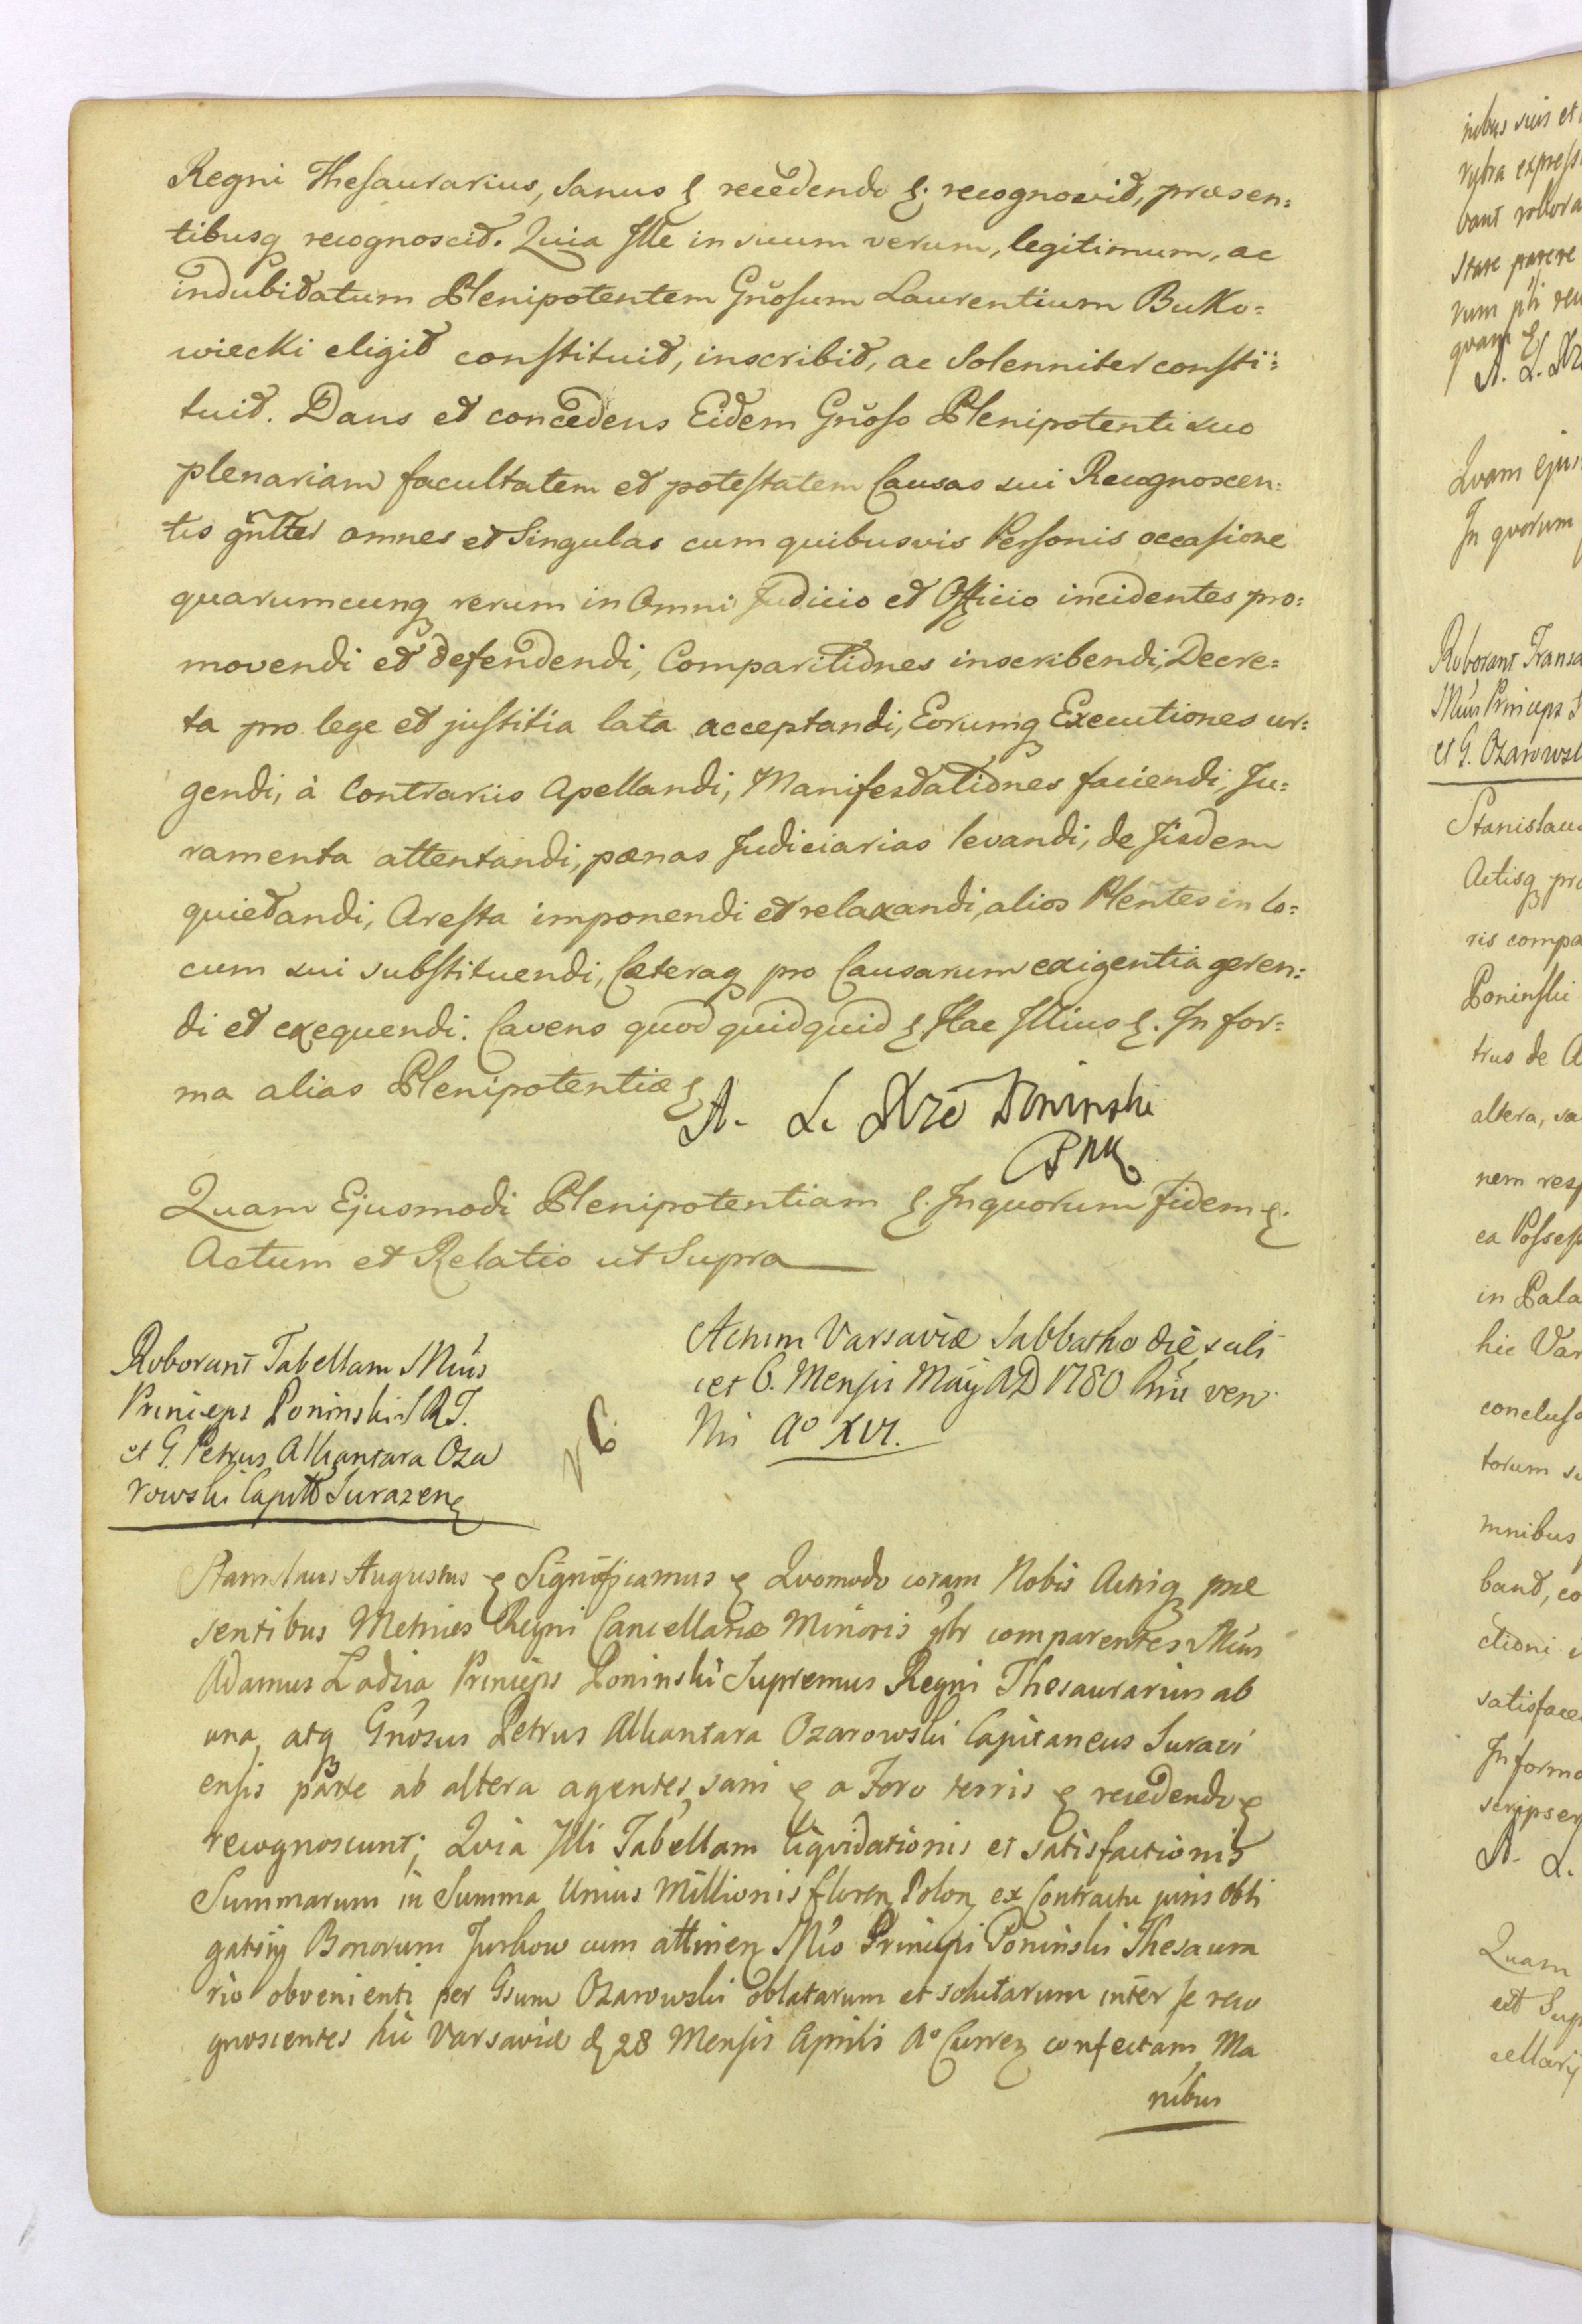 Regni Thesaurarius, Sanus & recedendo &. recognovit, præsen=
tibusq recognoscit. Quia Ille in suum verum, legitimum, ac
indubitatum Plenipotentem Gnosum Laurentium Buko=
wiecki eligit constituit, inscribit, ac Solenniter consti=
tuit. Dans et concedens Eidem Gnoso Plenipotenti suo
plenariam facultatem et potestatem Causas sui Recognoscen=
tis gnlter omnes et Singulas cum quibusvis Personis occasione
quarumcunq rerum in Omni Judicio et Officio incidentes pro=
movendi et defendendi, Comparitiones inscribendi, Decre=
ta pro lege et justitia lata acceptandi, Eorumq Executiones ur=
gendi, à Contrariis Apellandi, Manifestationes faciendi, Ju=
ramenta attentandi, pænas Judiciarias levandi, de Iisdem
quietandi, Aresta imponendi et relaxandi, alios Plentes in lo=
cum sui substituendi, Cæteraq pro Causarum exigentia geren=
di et exequendi. Cavens quod quidquid & Hac Illius &. In for=
ma alias Plenipotentiæ &
A. L. Xże Poninski
PWK
Quam Ejusmodi Plenipotentiam &. In quorum fidem &.
Actum et Relatio ut Supra
Roborant Tabellam Illmus
Princeps Poninski S R I.
et G. Petrus Alkantara Oża
rowski Capitt Surazen
Actum Varsaviæ Sabbatho die scili
cet 6. Mensis Maÿ AD 1780 Rni ven
Nri Aº XVI.
Stanislaus Augustus & Significamus & Quomodo coram Nobis Actisq præ
sentibus Metrices Regni Cancellariæ Minoris pltr comparentes Illmus
Adamus Lodzia Princeps Poninski Supremus Regni Thesaurarius ab
una, atq Gnosus Petrus Alkantara Ozarowski Capitaneus Surazi
ensis parte ab altera agentes, sani & a Foro terris & recedendo &
recognoscunt; Quia Illi Tabellam liquidationis et satisfactionis
Summarum in Summa Unius Millionis floren Polon ex Contractu juris obli
gatorij Bonorum Jurkow cum attinen Illmo Principi Poninski Thesaura
rio obvenienti per Gsum Ozarowski oblatarum et solutarum inter se reco
gnoscentes hic Varsaviæ d 28 Mensis Aprilis Aº Curren confectam, Ma
nibus